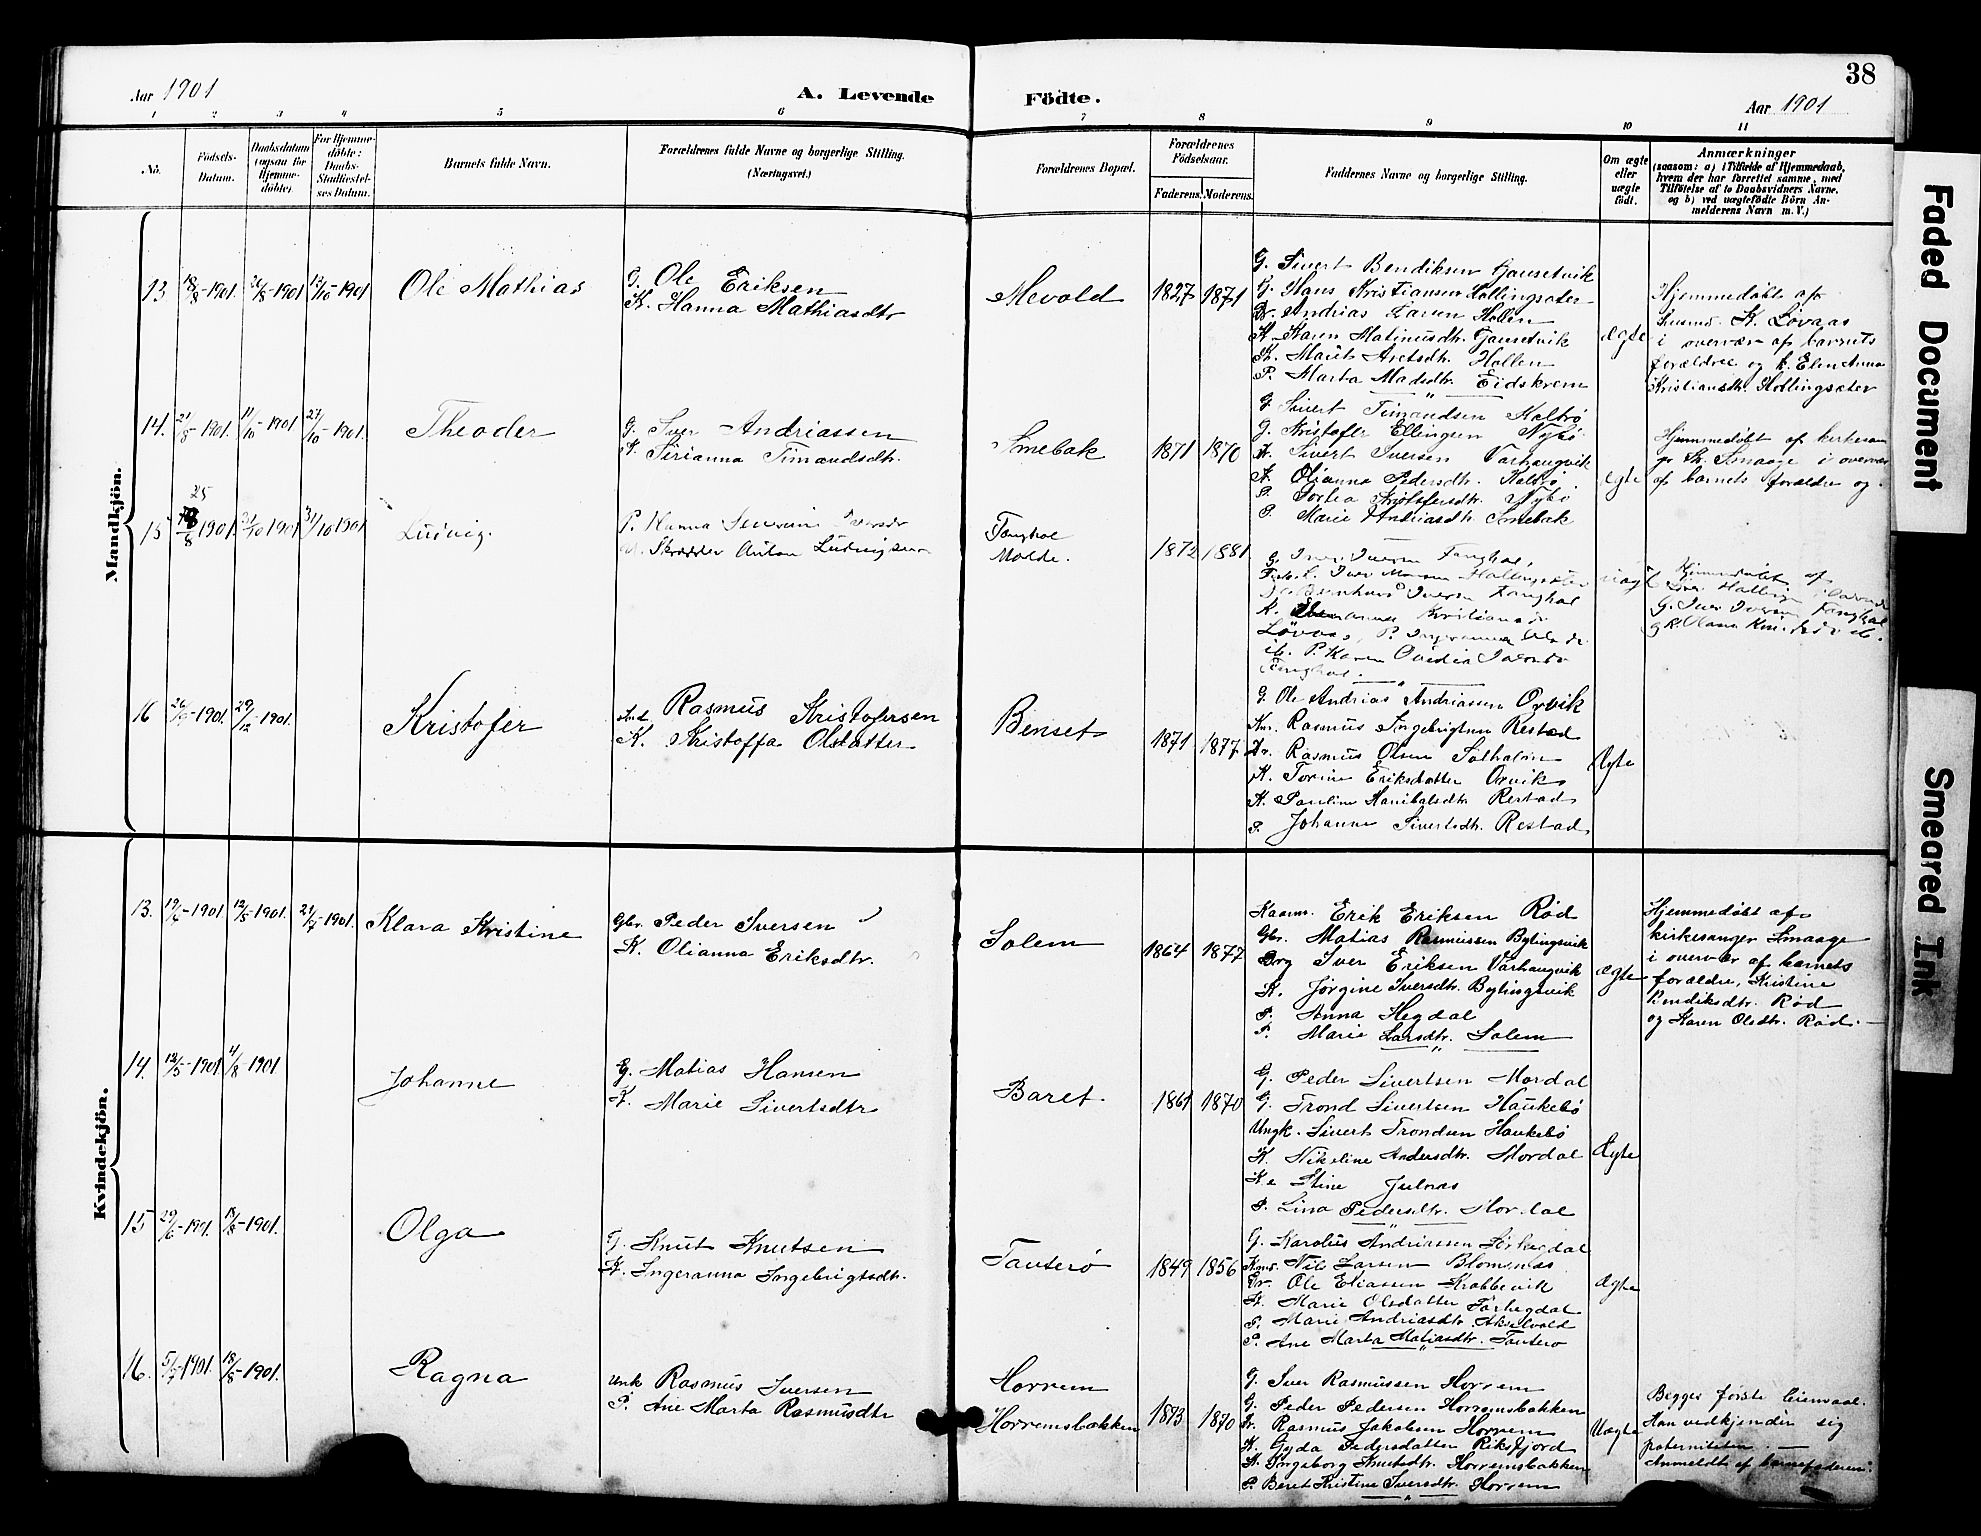 38
Aar 1901
A. Levende Födte.
Aar 1901
1 2 3 4 5 6 7 8 9 10 11
No.
Födsels-
Datum.
Daabsdatum
(ogsaa for
Hjemme-
döbte)
For Hjemme-
döbte:
Daabs-
Stadfæstel-
ses Datum.
Barnets fulde Navn.
Forældrenes fulde Navne og borgerlige Stilling.
(Næringsvei.)
Forældrenes Bopæl.
Forældrenes
Födselsaar.
Faderens. Moderens.
Faddernes Navne og borgerlige Stilling.
Om ægte
eller
uægte
födt.
Anmærkninger
(saasom: a) i Tilfælde af Hjemmedaab,
hvem der har forrettet samme, med
Tilföielse af to Daabsvidners Navne.
og b) ved uægtefödte Börn An-
melderens Navn m. V.)
Mandkjön.
13 18/8-1901. 20/8-1901 13/10-1901
Ole Mathias
G. Ole Eriksen
K. Hanna Mathiasdtr
Mevold
1827 1871
G. Sivert Bendiksen Gausetvik
G. Hans Kristiansen Hollingsæter
Andrias Larsen Hollen
K. Karen Matinusdtr. Gausetvik
K. Marit Aretsdtr. Hollen
P. Marta Madsdtr. Eidskrem
ægte
Hjemmedøbt af
K. Løvaas
i overvær af barnets
forældre og k. Elen Anna
Kristiansdtr. Hollingsæter
14. 21/8-1901. 11/10-1901 27/10-1901.
Theoder
G. Iver Andriassen
K. Sirianna Timandsdtr.
Smebak
1871 1870
G. Sivert Timandsen Kalbø
G. Kristofer Ellingsen Nybø
Sivert Iversen Varhaugvik
K. Olianna Pedersdtr. Kalbø
P. Dortea Kristofersdtr. Nybø
P. Marie Andriasdtr. Smebak
ægte
Hjemmedøbt af kirkesan
Smaage i overvær
af barnets forældre og
15 25/8 1901. 31/10 1901 31/10 1901
Ludvig.
P. Hanna Severine Iversdr
Skrædder Anton Ludvigsen
Fanghol
Molde.
1872 1881
G. Iver Iversen Fanghol,
Iver Hollingsæter
Bernhard Iversen Fanghol
K. Kristiansdr
Løvaas, P. Ingeranna Olsdr
ib. P. Karen Ovidia Iversdr
Fanghol.
uægt
Hjemmedøbt af
G. Iver Iversen Fanghol
16 26/9-1901. 29/12-1901.
Kristofer
Rasmus Kristofersen
K. Kristoffa Olsdatter
Benset
1871 1877
G. Ole Andrias Andriassen Orvik
Rasmus Ingebrigtsen Restad
Rasmus Olsen Solholm
K. Torine Eriksdatter Orvik
K. Pauline Hanibalsdtr. Restad
P. Johanne Sivertsdtr. Restad
Ægte
Kvindekjön.
13. 19/6-1901. 12/5-1901. 21/7-1901.
Klara Kristine
Gbr. Peder Iversen
K. Olianna Eriksdtr.
Solem
1864 1877
Kaarm. Erik Eriksen Rød
Gbr. Matias Rasmussen Bylingsvik
Iver Eriksen Varhaugvik
K. Jørgine Iversdtr. Bylingsvik
P. Anna Hegdal
P. Marie Larsdtr. Solem
ægte
Hjemmedøbt af
kirkesanger Smaage
i overvær af barnets
forældre, Kristine
Bendiksdtr. Rød
og Karen Olsdtr. Rød.
14. 13/5-1901 4/8-1901
Johanne
G. Matias Hansen
K. Marie Sivertsdtr
Baret.
1861 1870
G. Peder Sivertsen Mordal
G. Trond Sivertsen Haukebø
Ungk. Sivert Trondsen Haukebø
K. Nikoline Andersdtr. Mordal
K. Stine Julnæs
P. Lina Pedersdtr. Mordal
Ægte
15 29/6-1901. 18/8-1901.
Olga
G. Knut Knutsen
K. Ingeranna Ingebrigtsdtr.
Tauterø
1849 1856
G. Karolus Andriassen Sørhegdal
Nils Larsen Blomsnæs
Ole Eliassen Krabbevik
K. Marie Olsdatter Sørhegdal
P. Marie Andriasdtr. Akselvold
P. Ane Marta Matiasdtr. Tauterø
Ægte
16. 5/7-1901. 18/8-1901.
Ragna
Unk Rasmus Iversen
P. Ane Marta Rasmusdtr
Horrem
Horremsbakken
1873 1870
G. Iver Rasmussen Horrem
G. Peder Pedersen Horremsbakken
Rasmus Jakobsen Horrem
K. Gyda Pedersdatter Riksfjord
K. Ingeborg Knutsdtr. Horremsbakken
P. Beret Kristine Iversdtr. Horrem
Uægte
Begges første Leiermaal.
Han vedkjender sig
paterniteten. —
Anmeldt af barnefaderen.
Faded Document
Smeared Ink